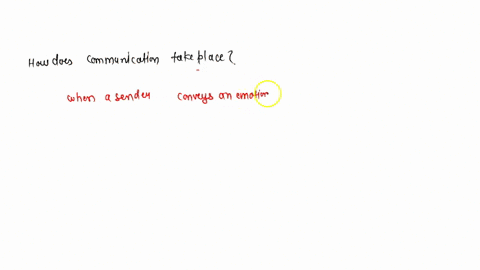 How does communication take place?
when a sender conveys an emotion